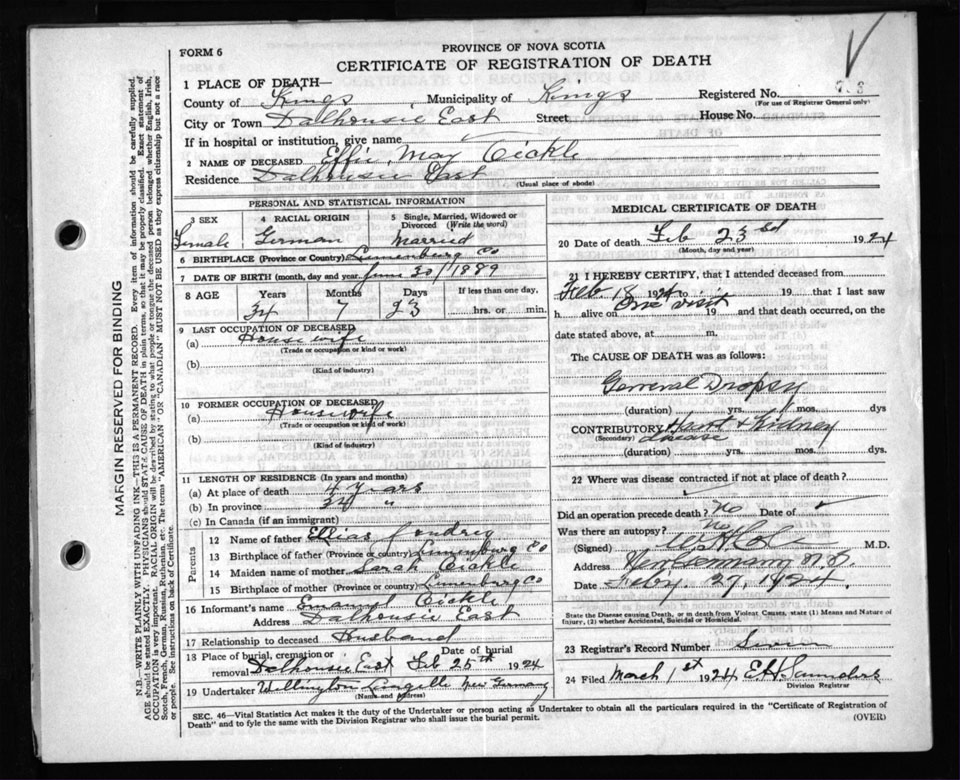 FORM 6
PROVINCE OF NOVA SCOTIA
CERTIFICATE OF REGISTRATION OF DEATH
1 PLACE OF DEATH—
County of Kings Municipality of Kings Registered No.
(For use of Registrar General only)
City or Town Dalhousie East Street House No.
If in hospital or institution, give name
2 NAME OF DECEASED Effie May Oickle
Residence Dalhousie East
(Usual place of abode)
PERSONAL AND STATISTICAL INFORMATION
3 SEX 4 RACIAL ORIGIN 5 Single, Married, Widowed or Divorced (Write the word)
Female German Married
6 BIRTHPLACE (Province or Country) Lunenburg Co
7 DATE OF BIRTH (month, day and year) June 30/1889
8 AGE Years Months Days If less than one day,
34 7 23 hrs. or min.
9 LAST OCCUPATION OF DECEASED
(a) Housewife
(Trade or occupation or kind or work)
(b)
(Kind of industry)
10 FORMER OCCUPATION OF DECEASED
(a) Housewife
(Trade or occupation or kind of work)
(b)
(Kind of industry)
11 LENGTH OF RESIDENCE (In years and months)
(a) At place of death 4 years
(b) In province 34 "
(c) In Canada (if an immigrant)
Parents
12 Name of father Elias
13 Birthplace of father (Province or country) Lunenburg Co
14 Maiden name of mother Sarah Oickle
15 Birthplace of mother (Province or country) Lunenberg Co
16 Informant's name Oickle
Address Dalhousie East
17 Relationship to deceased Husband
18 Place of burial, cremation or removal Date of burial
Dalhousie East Feb 25th 1924
19 Undertaker Wellington Langille New Germany
(Name and address)
MEDICAL CERTIFICATE OF DEATH
20 Date of death Feb 23rd 1924
(Month, day and year)
21 I HEREBY CERTIFY, that I attended deceased from
Feb 18 1924 to 19 that I last saw
h alive on One visit 19 and that death occurred, on the
date stated above, at m.
The CAUSE OF DEATH was as follows:
General Dropsy
(duration) yrs. mos. dys
CONTRIBUTORY Heart + Kidney
(Secondary) disease
(duration) yrs. mos. dys
22 Where was disease contracted if not at place of death?
Did an operation precede death? No Date of
Was there an autopsy? No
(Signed) Cole M.D.
Address New Germany N.S.
Date Feby. 27, 1924.
State the Disease causing Death, or in death from Violent Causes, state (1) Means and Nature of
Injury, (2) whether Accidental, Suicidal or Homicidal.
23 Registrar's Record Number Seven
24 Filed March 1st 1924 E H Saunders
Division Registrar
SEC. 46—Vital Statistics Act makes it the duty of the Undertaker or person acting as Undertaker to obtain all the particulars required in the "Certificate of Registration of
Death" and to fyle the same with the Division Registrar who shall issue the burial permit.
(OVER)
MARGIN RESERVED FOR BINDING
N.B.—WRITE PLAINLY WITH UNFADING INK—THIS IS A PERMANENT RECORD. Every item of information should be carefully supplied.
AGE should be stated EXACTLY. PHYSICIANS should STATE CAUSE OF DEATH in plain terms, so that it may be properly classified. Exact statement of
OCCUPATION is very important. RACIAL ORIGIN will be described by stating to what people or tongue the deceased person belonged whether English, Irish,
Scotch, French, German, Russian, Ruthenian, etc. The terms "AMERICAN" OR "CANADIAN" MUST NOT BE USED as they express citizenship but not a race
or people. See instructions on back of Certificate.